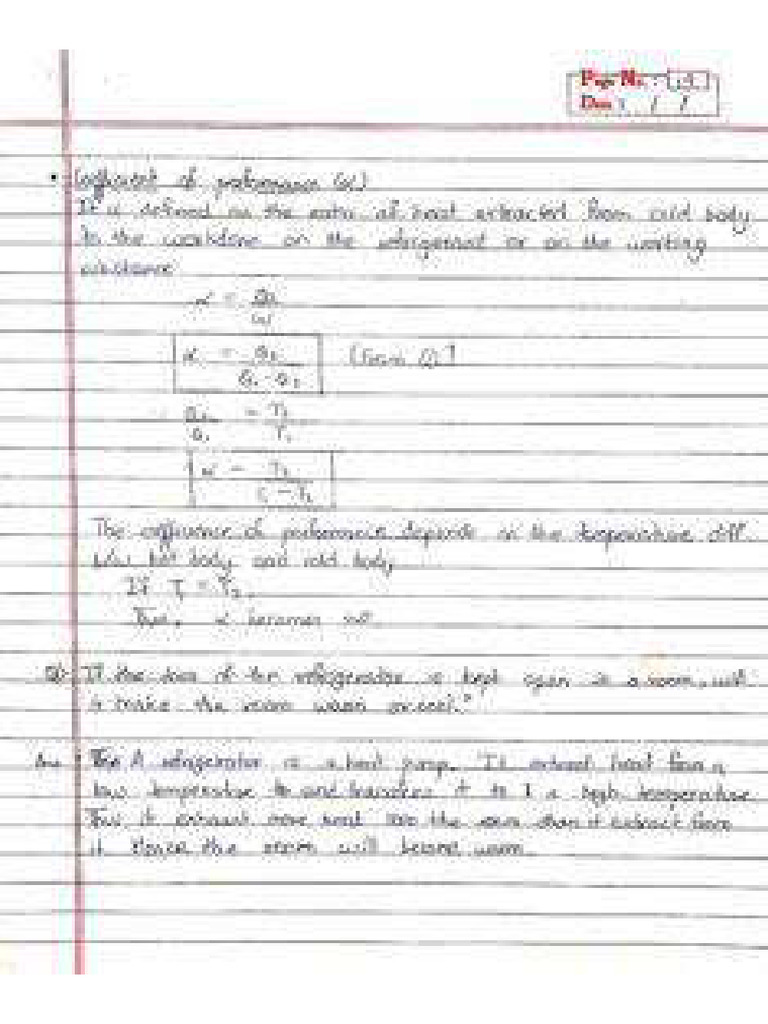 Page No.:
Date: / /
• Coefficient of performance (α)
It is defined as the ratio of heat extracted from cold body
to the workdone on the refrigerant or on the working
substance
α = Q2
W
α = Q2 (from ①)
Q1 - Q2
Q2 = T2
Q1 T1
α = T2
- T2
The coefficient of performance depends on the temperature diff
b/w hot body and cold body
If T1 = T2,
Then, α becomes
Q: If the door of the refrigerator is kept open in a room, will
it make the room warm or cool?
Ans: The A refrigerator is a heat pump. It extract heat from a
low temperature to and transfers it to a high temperature
Thus it exhaust more heat into the room than it extract from
it Hence the room will become warm